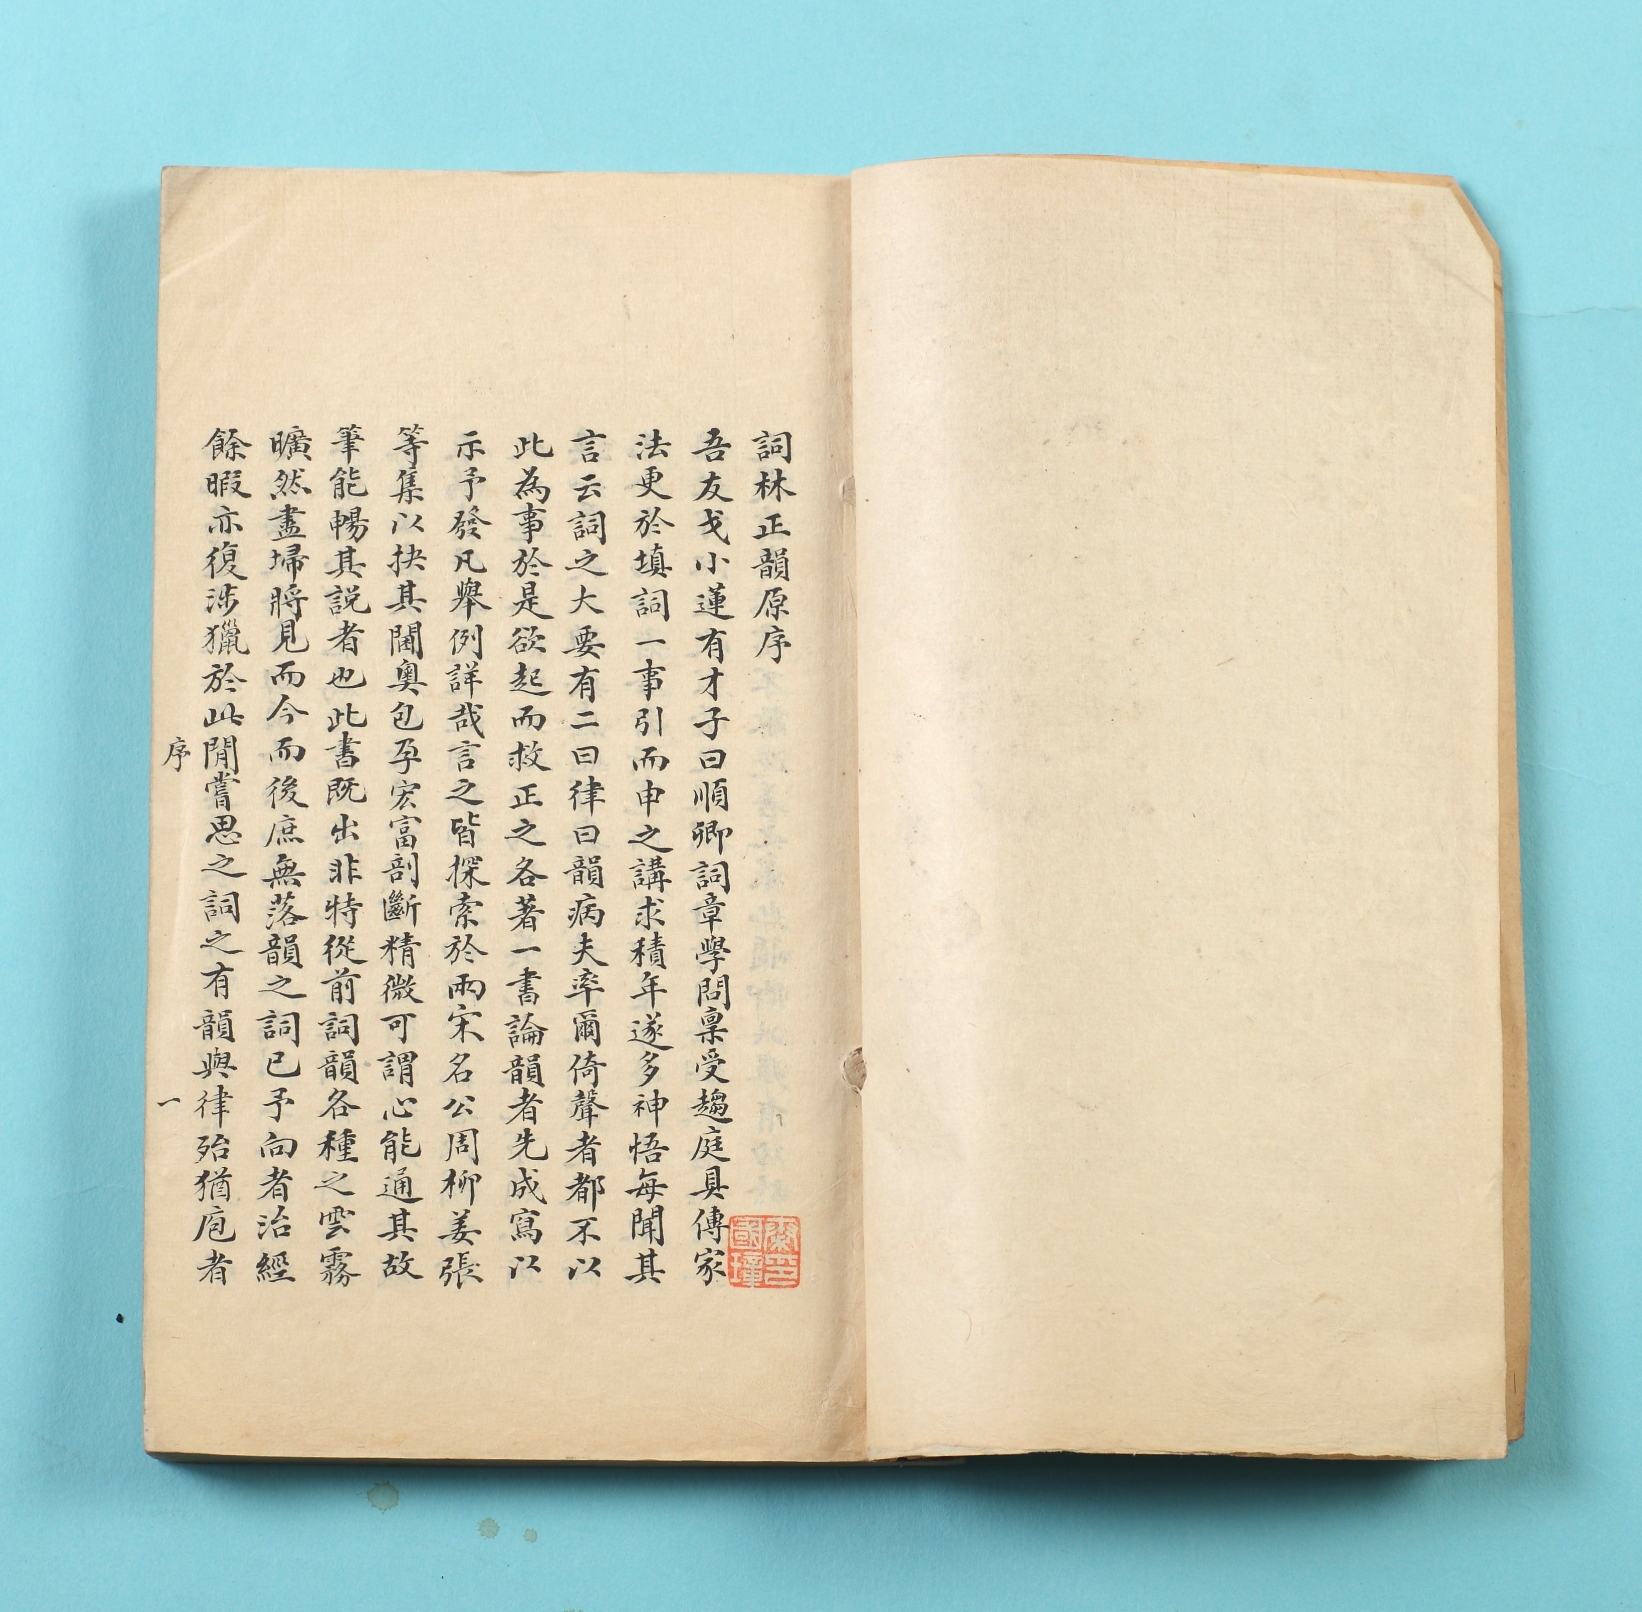 詞林正韻原序
吾友戈小蓮有才子曰順卿詞章學問稟受趨庭具傳家
法更於填詞一事引而申之講求積年遂多神悟每聞其
言云詞之大要有二曰律曰韻病夫率爾倚聲者都不以
此為事於是欲起而救正之各著一書論韻者先成寫以
示予發凡舉例詳哉言之皆探索於兩宋名公周柳姜張
等集以抉其閫奧包孕宏富剖斷精微可謂心能通其故
筆能暢其説者也此書既出非特從前詞韻各種之雲霧
曠然盡埽將見而今而後庶無落韻之詞已予向者治經
餘暇亦復涉獵於此閒嘗思之詞之有韻與律殆猶庖者
序
一